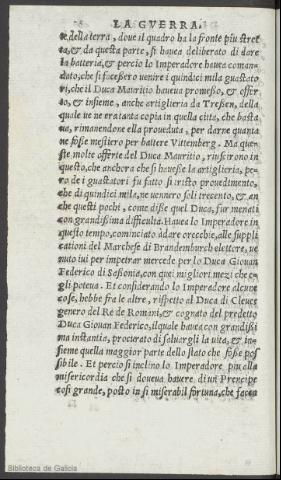 LA GVERRA
te della terra, doue il quadro ha la fronte piu stret
ta, & da questa parte, si hauea deliberato di dare
la batteria, & percio lo Imperadore hauea coman
dato, che si facessero uenire i quindici mila guastato
ri, che il Duca Mauritio haueua promesso, & offer
to, & insieme, anche artiglieria da Tresen, della
quale ue ne era tanta copia in quella citta, che basta
ua, rimanendone ella proueduta, per darne quanta
ne fosse mestiero per battere Vittemberg. Ma que
ste molte offerte del Duca Mauritio, riuscirono in
questo, che anchora che si hauesse la artiglieria, pe-
ro de i guastatori fu fatto si tristo prouedimento,
che di quindici mila, ne uennero soli trecento, & an
che questi pochi, come disse quel Duca, fur menati
con grandissima difficulta. Hauea lo Imperadore in
questo tempo, cominciato à dare orecchie, alle suppli
cationi del Marchese di Brandemburch elettore, ue
nuto iui per impetrar mercede per lo Duca Giouan
Federico di Sassonie, con quei migliori mezi che e-
gli poteua. Et considerando lo Imperadore alcune
cose, hebbe fra le altre, rispetto al Duca di Cleues
genero del Ré de Romani, & cognato del predetto
Duca Giouan Federico, il quale hauea con grandissi
ma instantia, procurato di saluargli la uita, & in-
sieme quella maggior parte dello stato che fosse pos
sibile. Et percio si inclino lo Imperadore piu alla
misericordia che si doueua hauere di un Prencipe
cosi grande, posto in si miserabil fortuna, che facea
Biblioteca de Galicia